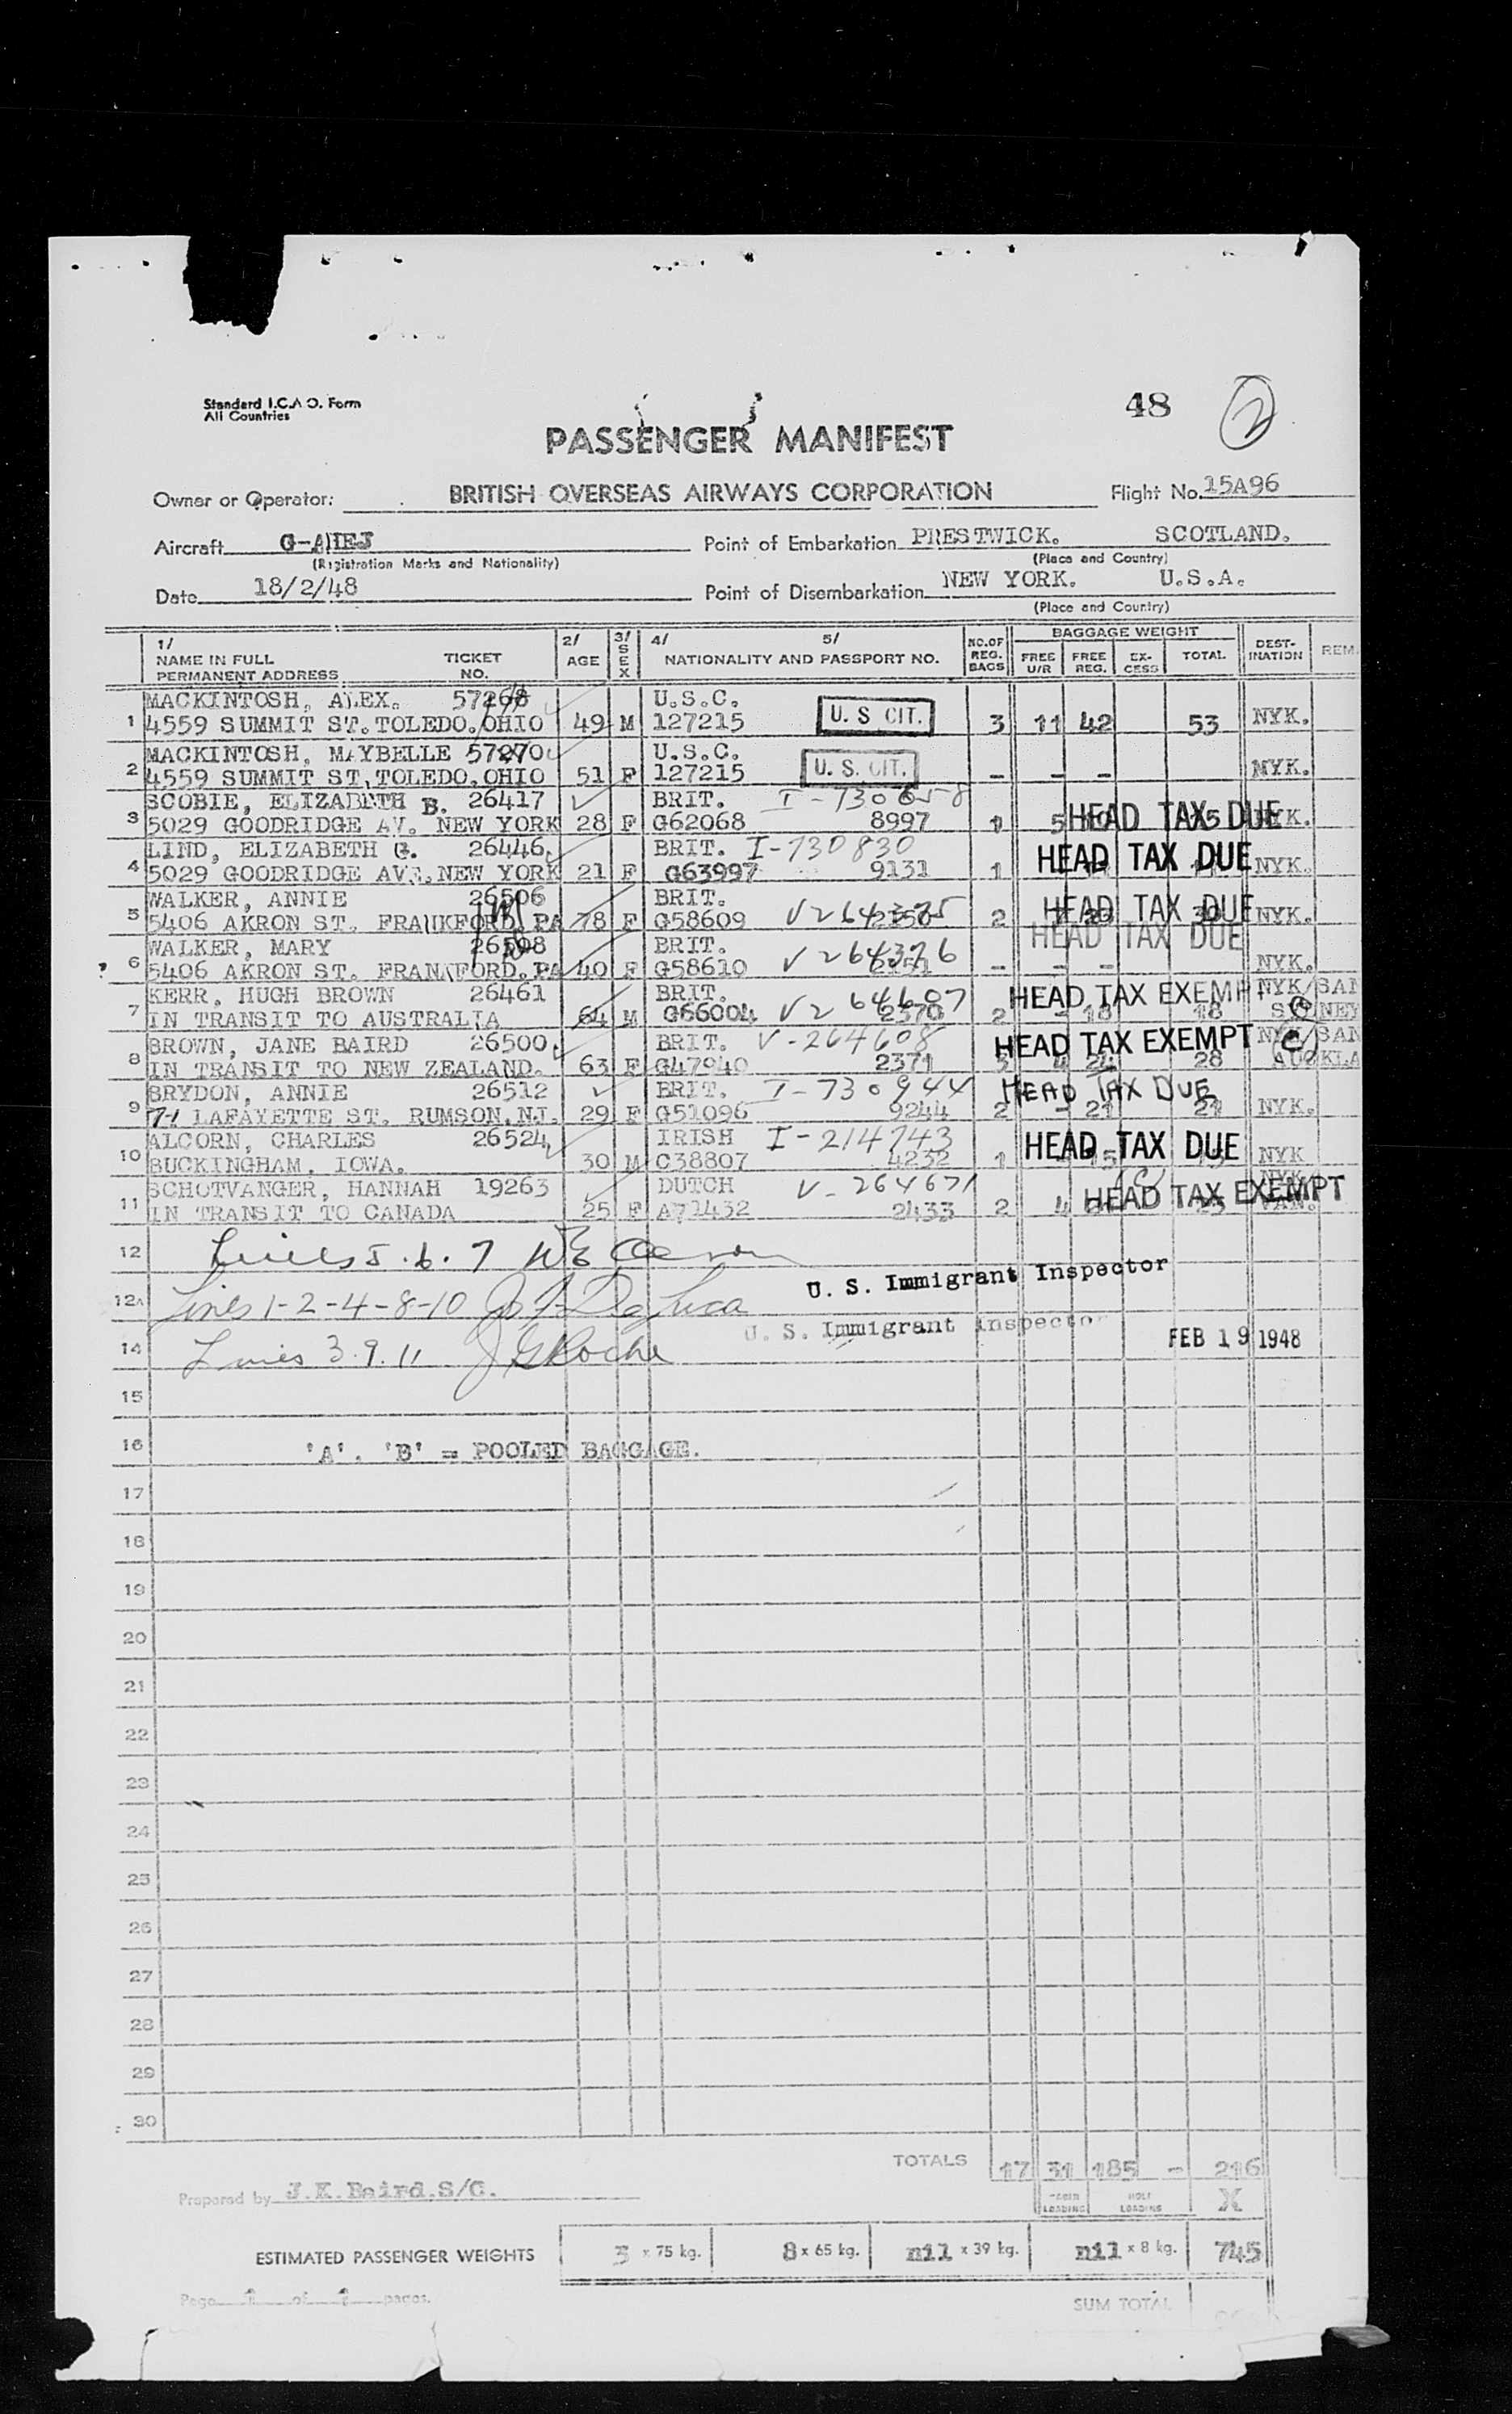 48 2
Standard I.C.A.O. Form
All Countries
PASSENGER MANIFEST
Owner or Operator: BRITISH OVERSEAS AIRWAYS CORPORATION Flight No. 15A96
Aircraft G-AHEJ Point of Embarkation PRESTWICK. SCOTLAND.
(Registration Marks and Nationality) (Place and Country)
Date 18/2/48 Point of Disembarkation NEW YORK. U.S.A.
(Place and Country)
1/ NAME IN FULL PERMANENT ADDRESS TICKET NO. 2/ AGE 3/ SEX 4/ 5/ NATIONALITY AND PASSPORT NO. NO. OF REG. BAGS BAGGAGE WEIGHT FREE U/R FREE REG. EX-CESS TOTAL DEST-INATION REM
MACKINTOSH, ALEX. 57268 U.S.C.
1 4559 SUMMIT ST. TOLEDO. OHIO 49 M 127215 U. S CIT. 3 11 42 53 NYK.
MACKINTOSH, MAYBELLE 57270 U.S.C.
2 4559 SUMMIT ST, TOLEDO. OHIO 51 F 127215 U. S. CIT. - - - NYK.
SCOBIE, ELIZABETH B. 26417 BRIT. I-730658
3 5029 GOODRIDGE AV. NEW YORK 28 F G62068 8997 1 5 HEAD TAX DUE NYK.
LIND, ELIZABETH G. 26446. BRIT. I-730830
4 5029 GOODRIDGE AVE. NEW YORK 21 F G63997 9131 1 HEAD TAX DUE NYK.
WALKER, ANNIE 26506 BRIT.
5 5406 AKRON ST. FRANKFORD. PA 78 F G58609 V264375 2 HEAD TAX DUE 30 NYK.
WALKER, MARY 26508 BRIT. HEAD TAX DUE
6 5406 AKRON ST. FRANKFORD. PA 40 F G58610 V 264376 - - - NYK.
KERR, HUGH BROWN 26461 BRIT. HEAD TAX EXEMPT NYK/SAN
7 IN TRANSIT TO AUSTRALIA 64 M G66004 V264607 2370 2 - 18 18
BROWN, JANE BAIRD 26500. BRIT. V-264608 HEAD TAX EXEMPT NYK/SAN
8 IN TRANSIT TO NEW ZEALAND. 63 F G47940 2371 3 4 24 28 AUCKLA
BRYDON, ANNIE 26512 BRIT. I-730944 HEAD TAX DUE
9 71 LAFAYETTE ST. RUMSON. NJ. 29 F G51096 9244 2 - 21 21 NYK.
ALCORN, CHARLES 26524 IRISH I-214743 HEAD TAX DUE
10 BUCKINGHAM, IOWA. 30 M C38807 4232 1 15 NYK
SCHOTVANGER, HANNAH 19263 DUTCH V-264671 HEAD TAX EXEMPT
11 IN TRANSIT TO CANADA 25 F A71432 2433 2 4 VAN.
12 Lines 5.6.7
U. S. Immigrant Inspector
12A Lines 1-2-4-8-10 Jo. F. De Luca
U. S. Immigrant Inspector
14 Lines 3.9.11 J G Roche FEB 19 1948
15
16 'A'. 'B' = POOLED BAGGAGE.
17
18
19
20
21
22
23
24
25
26
27
28
29
30
TOTALS 17 31 185 - 216
Prepared by J.K.Baird.S/C. CABIN LOADING HOLD LOADING X
ESTIMATED PASSENGER WEIGHTS 3 x 75 kg. 8 x 65 kg. nil x 39 kg. nil x 8 kg. 745
Page 1 of 1 pages. SUM TOTAL